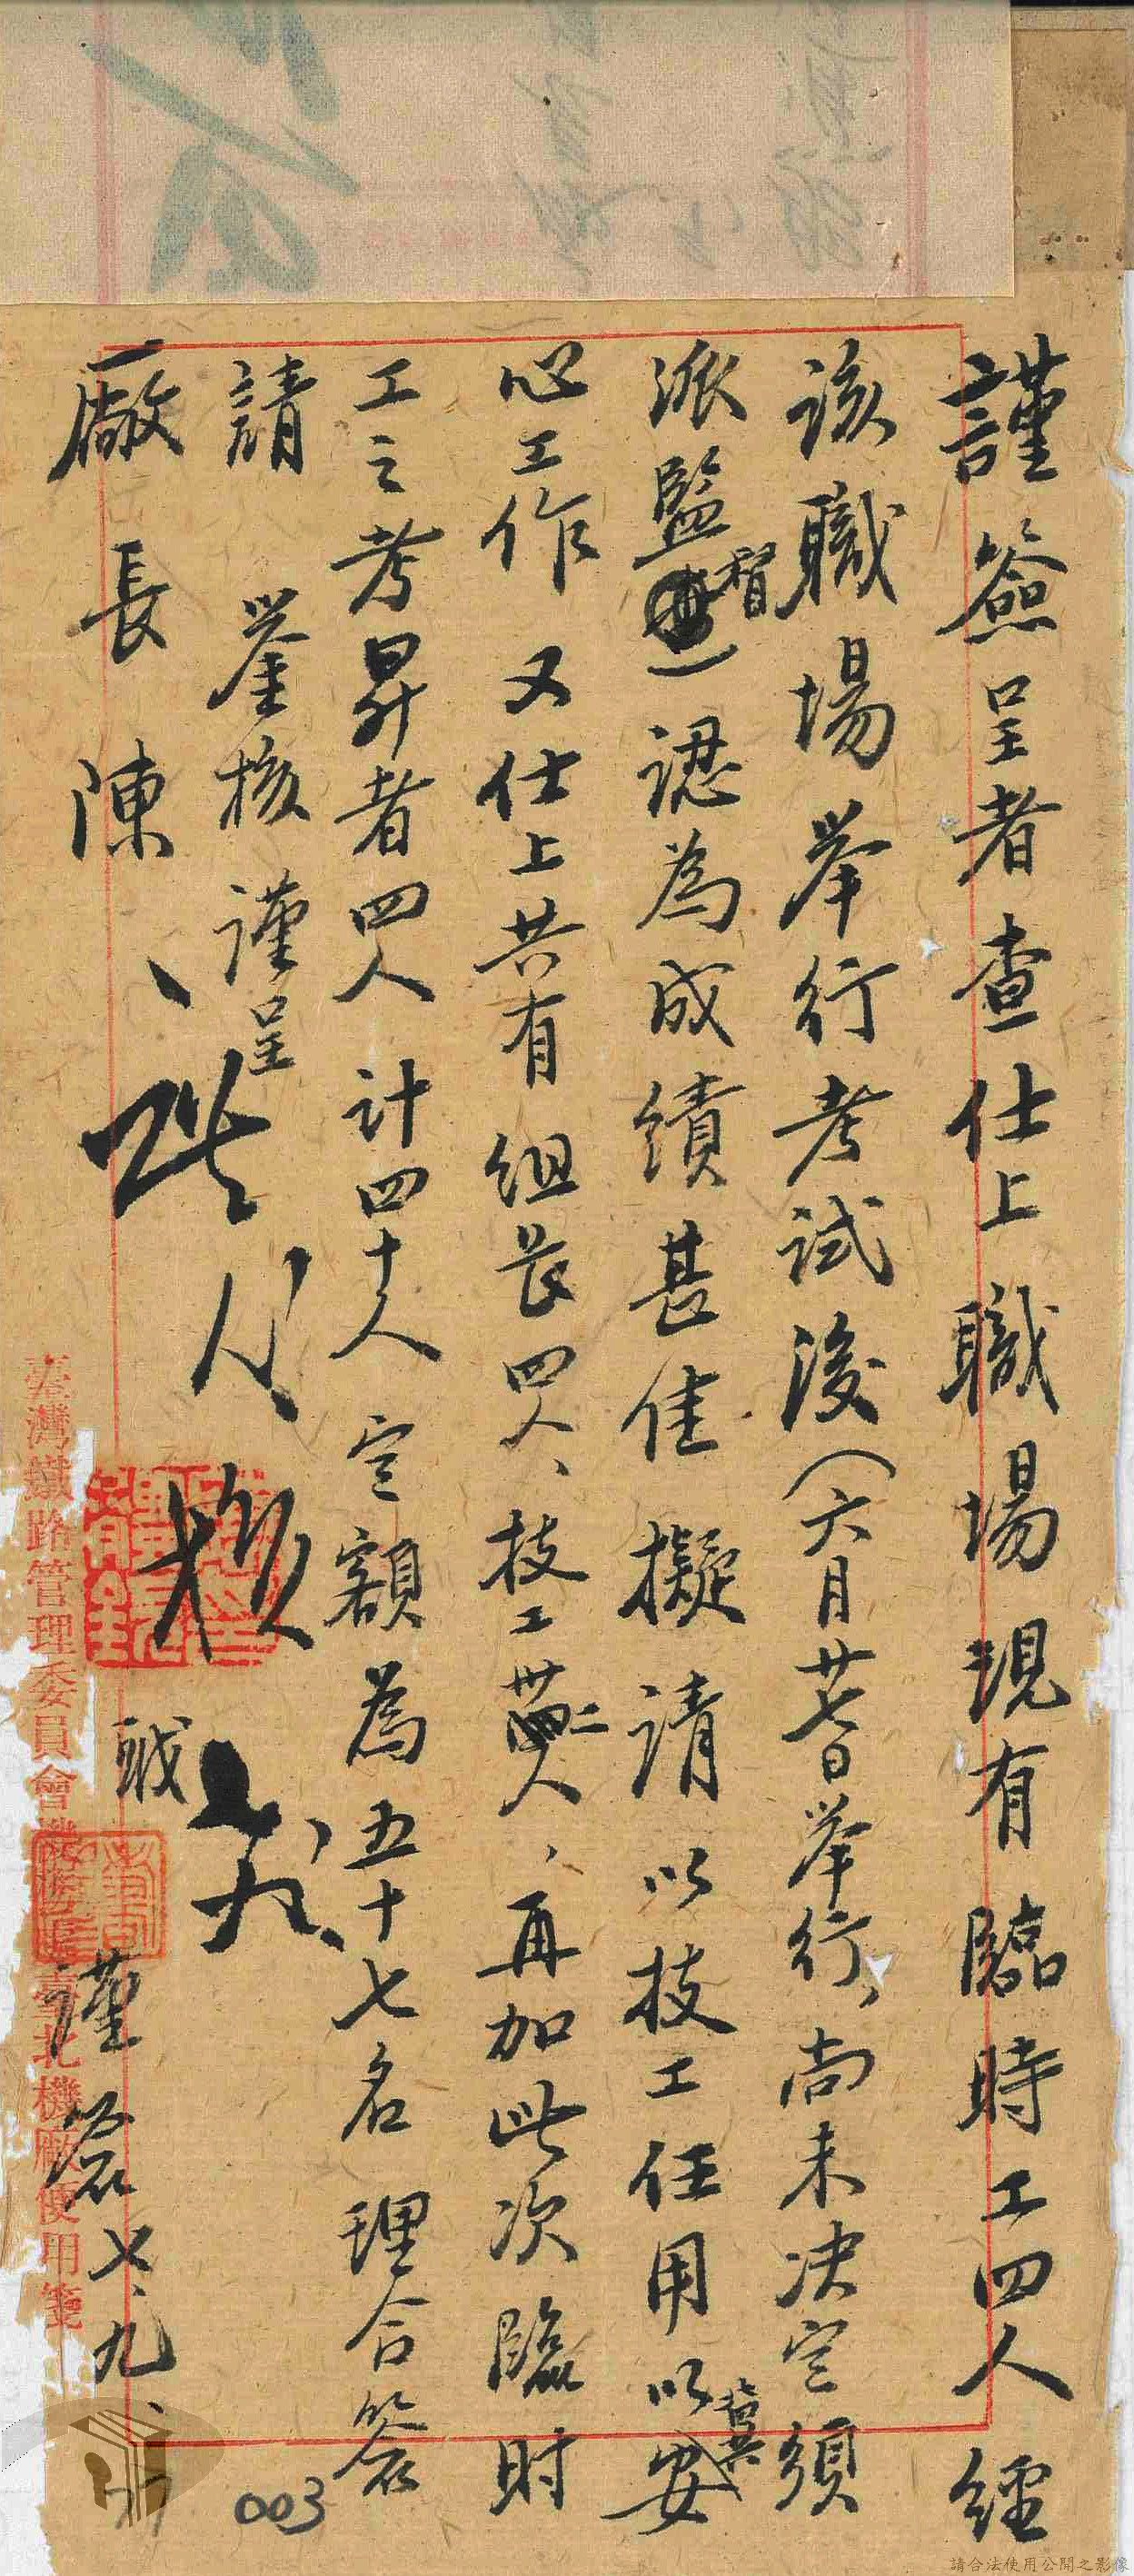 謹簽呈者查仕上職場現有臨時工四人經
該職場举行考試後（六月廿七日举行，尚未决定須
派監督認為成績甚佳擬請以技工任用以冀安
心工作又仕上共有組長四人、技工卅二人、再加此次臨时
工之考昇者四人計四十人定額為五十七名理合簽
請鉴核謹呈
廠長陳
職
謹簽七、九、
臺灣鐵路管理委員會機務處臺北機廠便用箋
003
請合法使用公開之影像